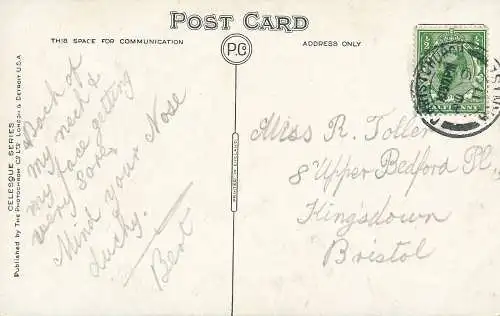 POST CARD
THIS SPACE FOR COMMUNICATION
P.Co
ADDRESS ONLY
Back of
my neck &
my face getting
very sore.
Mind your Nose
ducky.
Bert
Miss R. Toller
8 Upper Bedford Pl.,
Kingsdown
Bristol
CELESQUE SERIES
Published by THE PHOTOCHROM CO. LTD. LONDON & DETROIT U.S.A
PRINTED IN ENGLAND